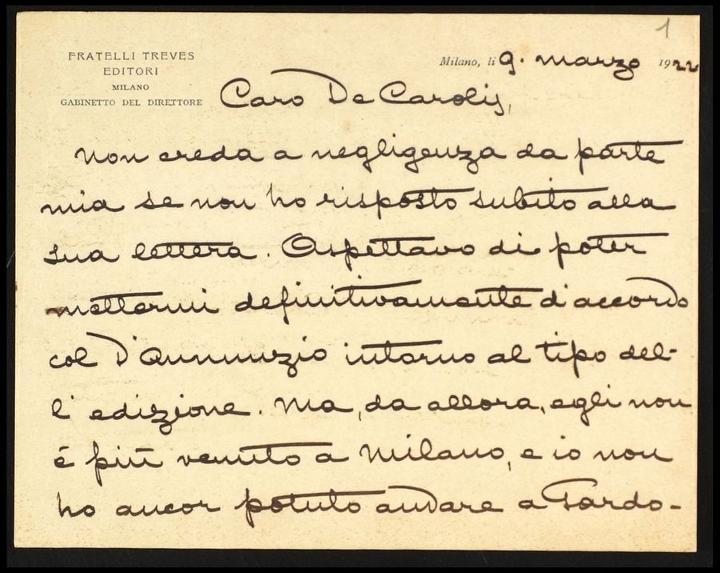 1
FRATELLI TREVES
EDITORI
MILANO
GABINETTO DEL DIRETTORE
Milano, li 9. marzo 1922
Caro De Carolis,
non creda a negligenza da parte
mia se non ho risposto subito alla
sua lettera. Aspettavo di poter
mettermi definitivamente d'accordo
col D'Annunzio intorno al tipo del-
l'edizione. Ma, da allora, egli non
è più venuto a Milano, e io non
ho ancor potuto andare a Gardo-